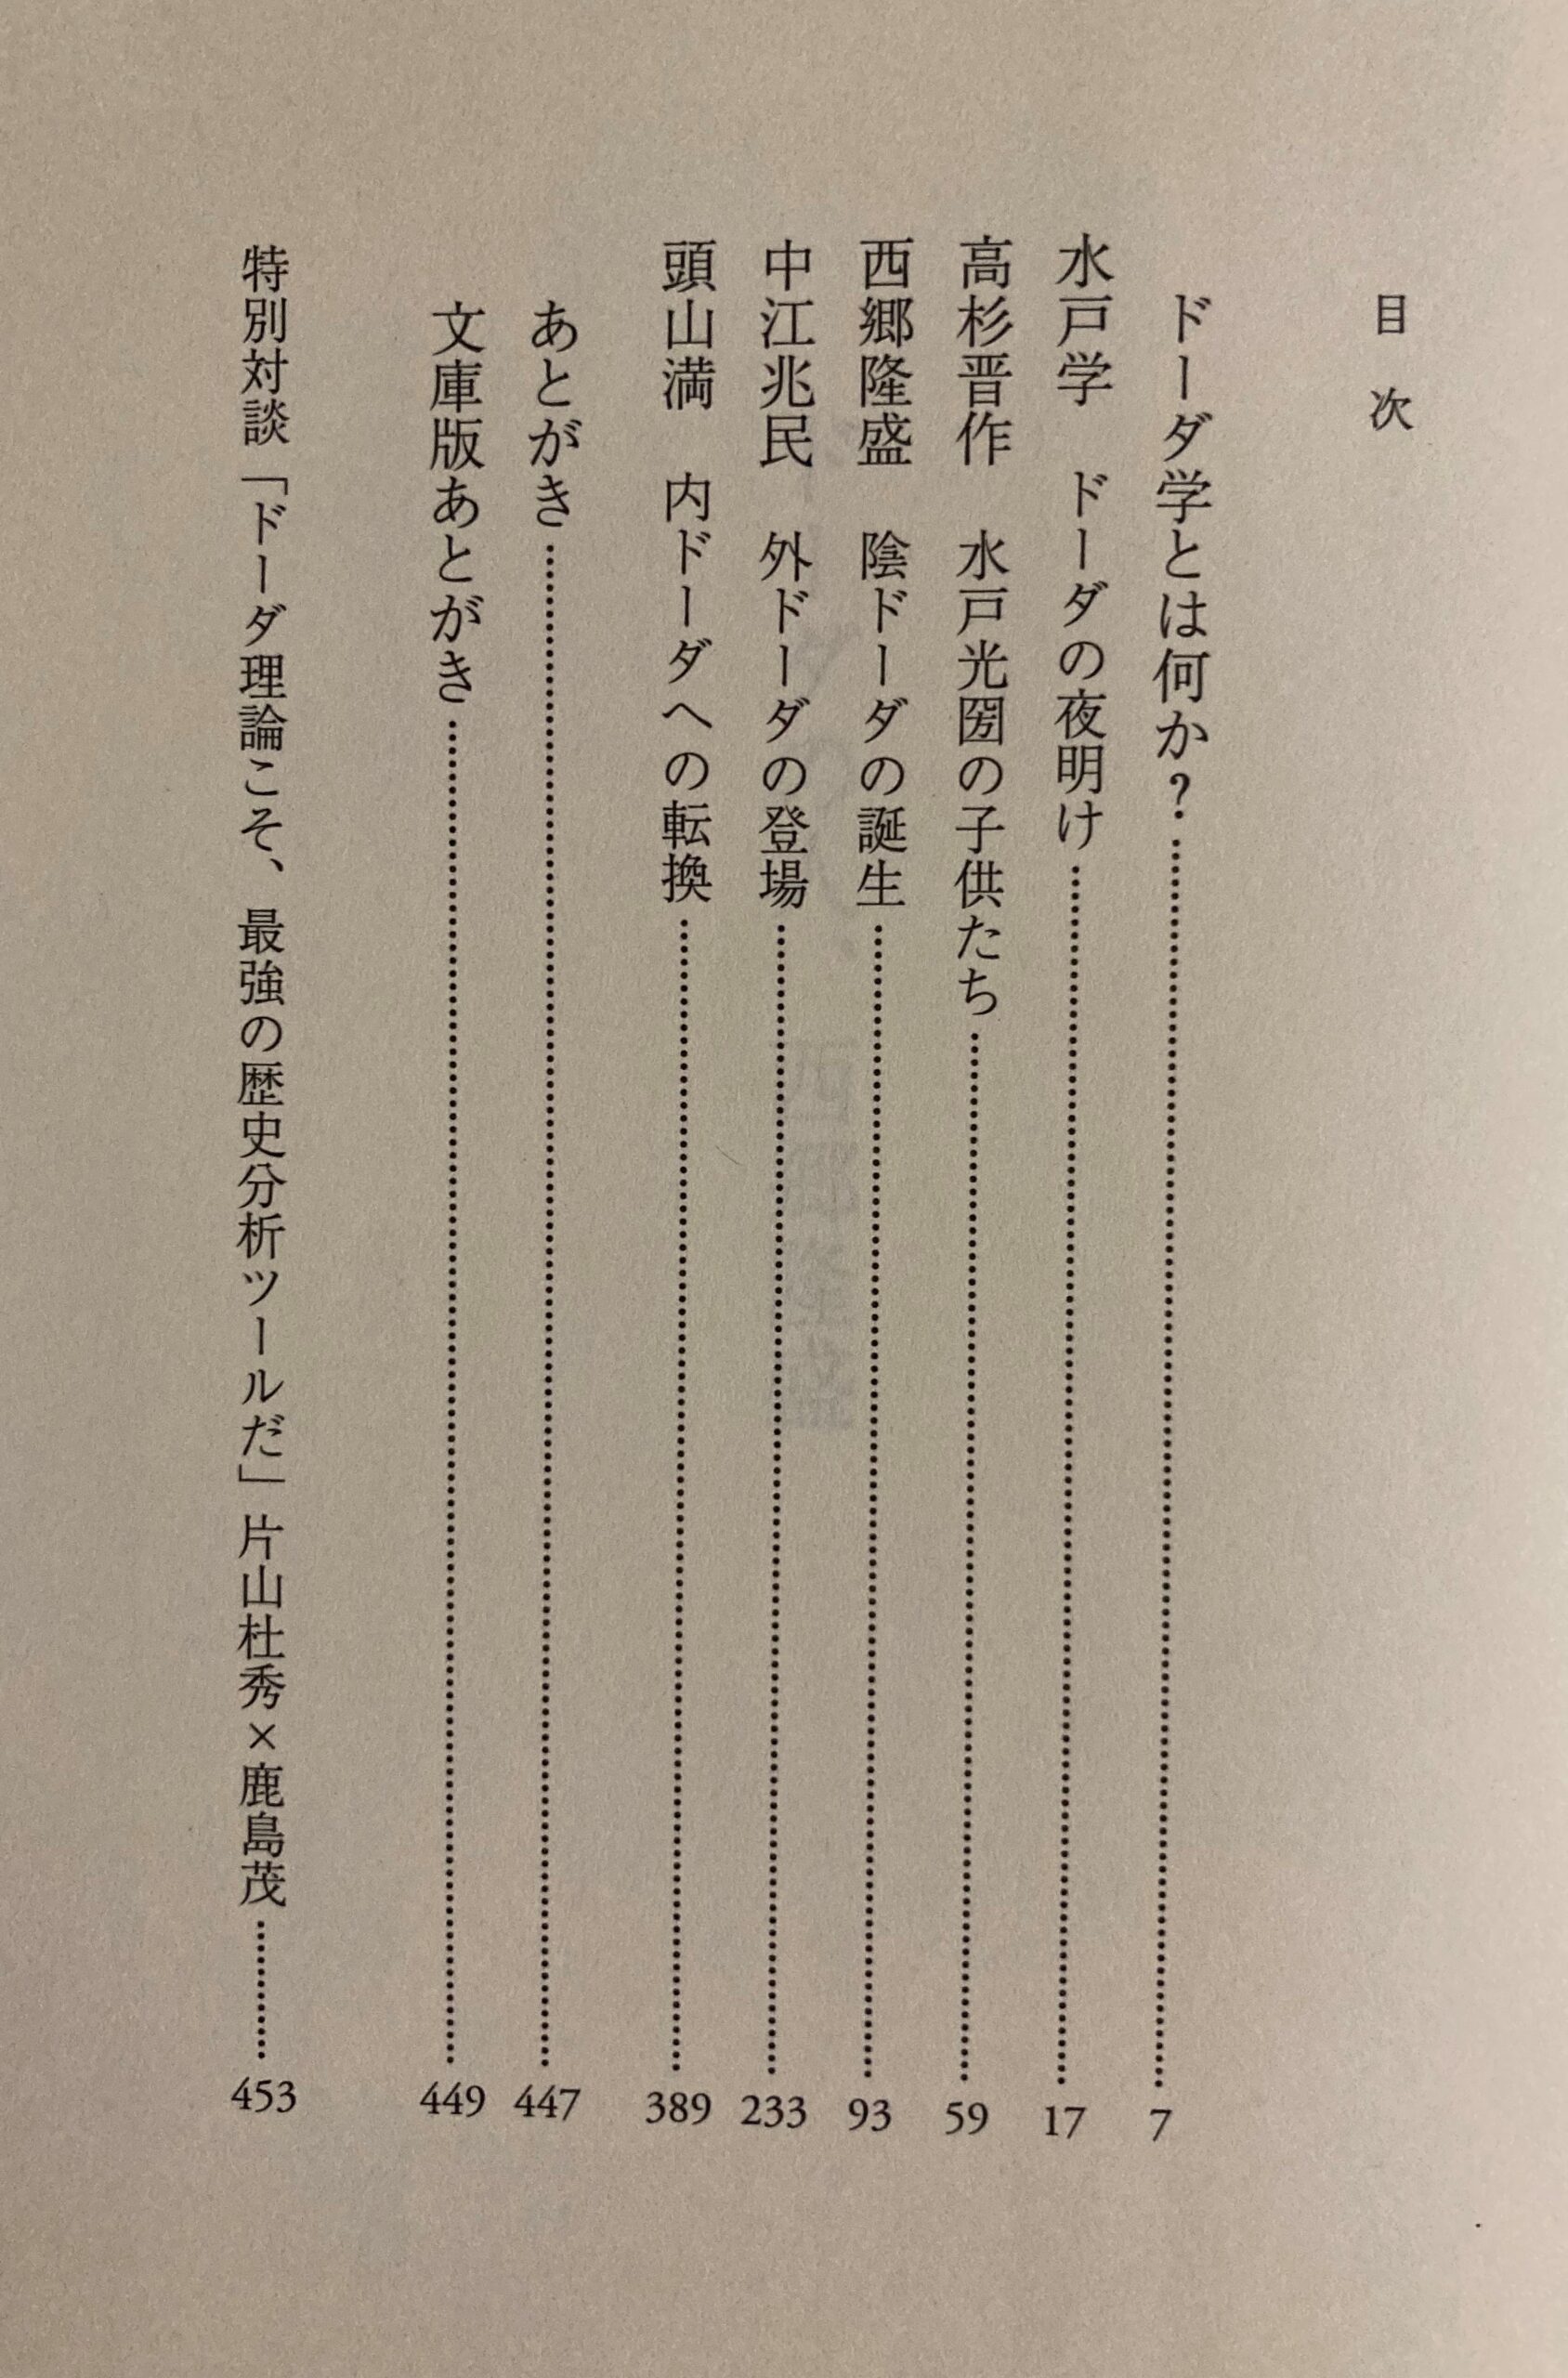 目次
ドーダ学とは何か？……7
水戸学　ドーダの夜明け……17
高杉晋作　水戸光圀の子供たち……59
西郷隆盛　陰ドーダの誕生……93
中江兆民　外ドーダの登場……233
頭山満　内ドーダへの転換……389
あとがき……447
文庫版あとがき……449
特別対談「ドーダ理論こそ、最強の歴史分析ツールだ」片山杜秀×鹿島茂……453